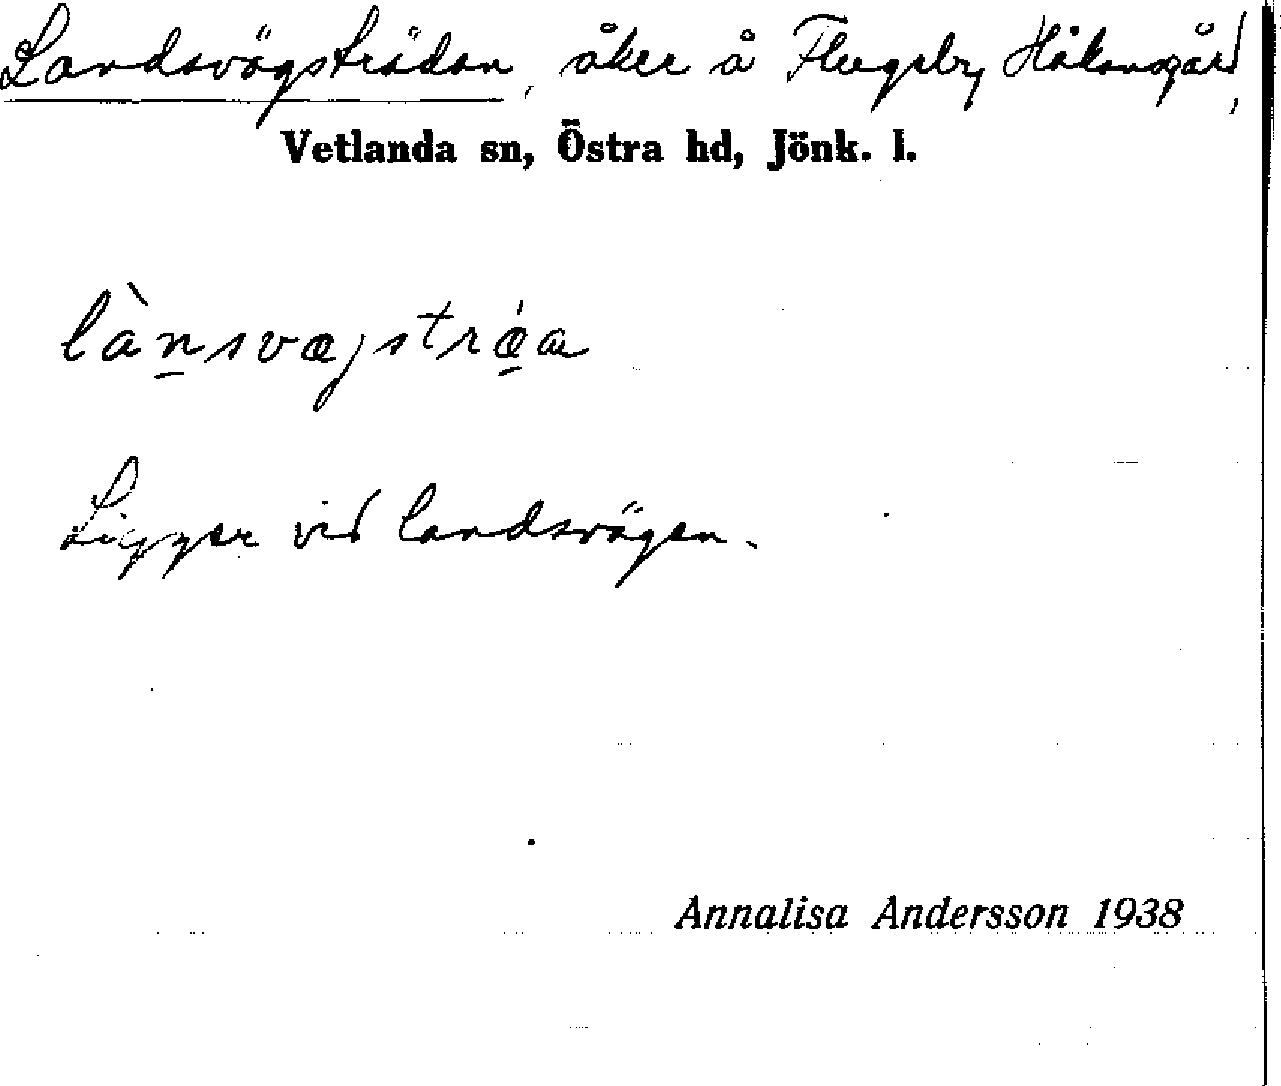 Landsvägsträdan, åker å Flugeby Håkansgård,
Vetlanda sn, Östra hd, Jönk. l.
lànsvæjstræ̀a
Ligger vid landsvägen.
Annalisa Andersson 1938